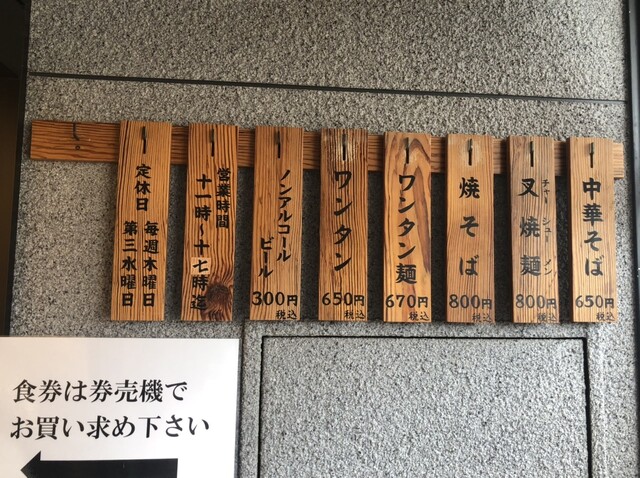 中華そば
650円
税込
チャーシューメン
叉焼麺
800円
税込
焼そば
800円
税込
ワンタン麺
670円
税込
ワンタン
650円
税込
ノンアルコール
ビール
300円
税込
営業時間
十一時~十七時迄
定休日
毎週木曜日
第三水曜日
食券は券売機で
お買い求め下さい